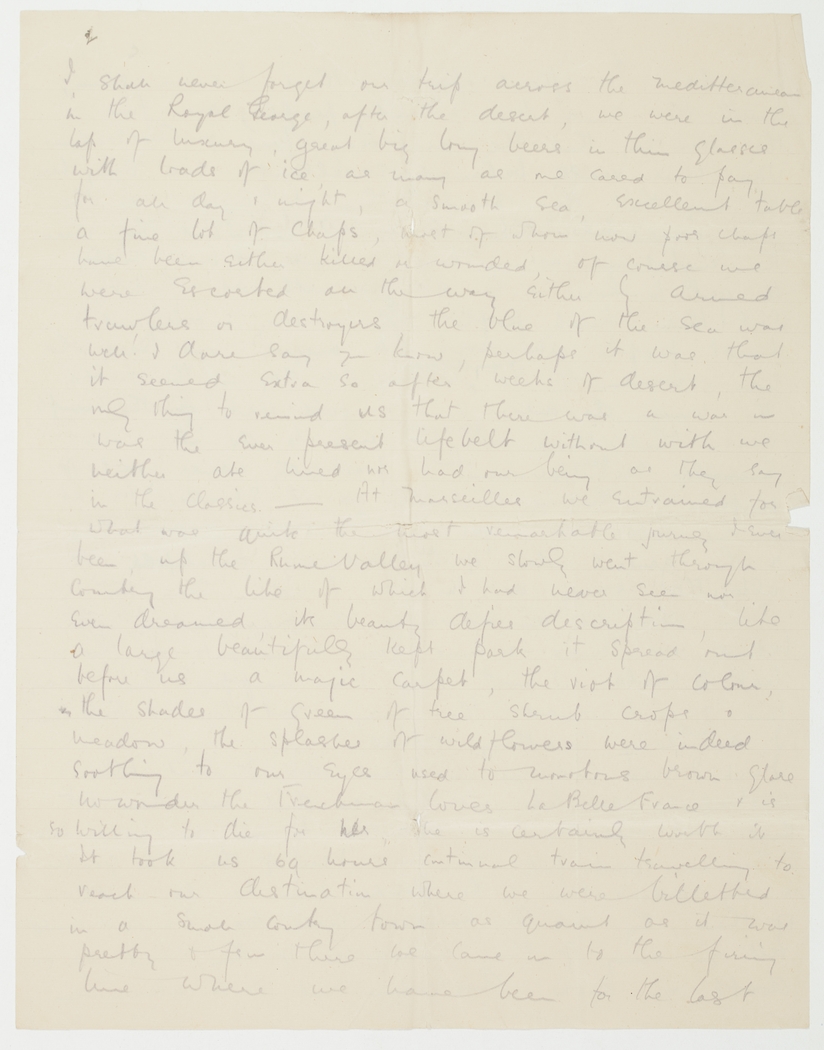 2
I shall never forget our trip across the mediterranean
in the Royal George, after the desert, we were in the
lap of luxury, great big long beers in thin glasses
with loads of ice, as many as one cared to pay
for all day & night, a smooth sea, excellent table
a fine lot of chaps, most of whom now poor chaps
have been either killed or wounded, of course we
were escorted all the way either by armed
trawlers or destroyers, the blue of the sea was
well I dare say you know, perhaps it was that
it seemed extra so after weeks of desert, the
only thing to remind us that there was a war on
was the ever present lifebelt without which we
neither ate lived nor had our being as they say
in the classics. — At Marseilles we entrained for
what was quite the most remarkable journey I ever
been, up the Rhone Valley we slowly went through
country the like of which I had never seen nor
even dreamed its beauty defies description, like
a large beautifully kept park it spread out
before us a majic carpet, the riot of colour,
the shades of green of tree shrub crops &
meadow, the splashes of wildflowers were indeed
soothing to our eyes used to monotonous brown glare
no wonder the Frenchman loves La Belle France & is
so willing to die for her she is certainly worth it
It took us 69 hours continual train travelling to
reach our destination where we were billetted
in a small country town as quaint as it was
pretty & from there we came in to the firing
line where we have been for the last